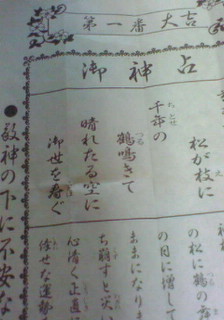 第一番大吉
御神占
松が枝に
千年の
ちとせ
鶴鳴きて
つる
晴れたる空に
御世を寿ぐ
の松に鶴の舞
の日に増して
ままになりま
ち崩すと災い
心清く正直に
倖せな運勢
●敬神の下に不安な